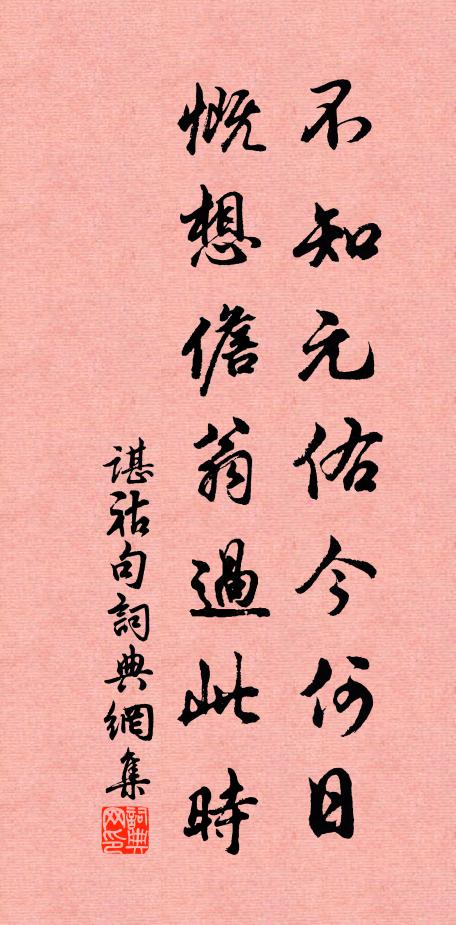 不知元佑今何日
慨想儋翁過此時
諶祜句詞典網集
詞典网印